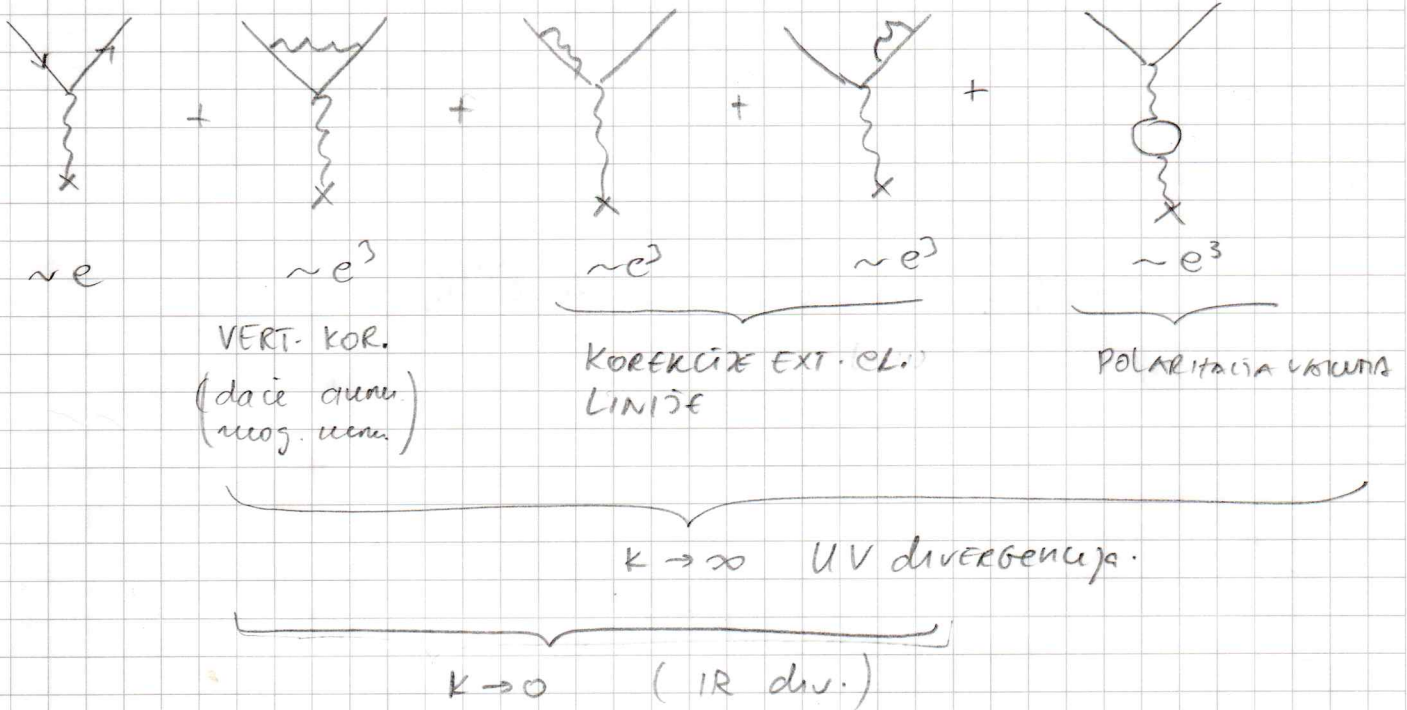 + + + +
~e ~e³ ~e³ ~e³ ~e³
VERT. KOR.
(daće
KOREKCIJE EXT. EL.
LINIJE
POLARIZACIJA VAKUMA
k → ∞ UV divergencija.
k → 0 (IR div.)